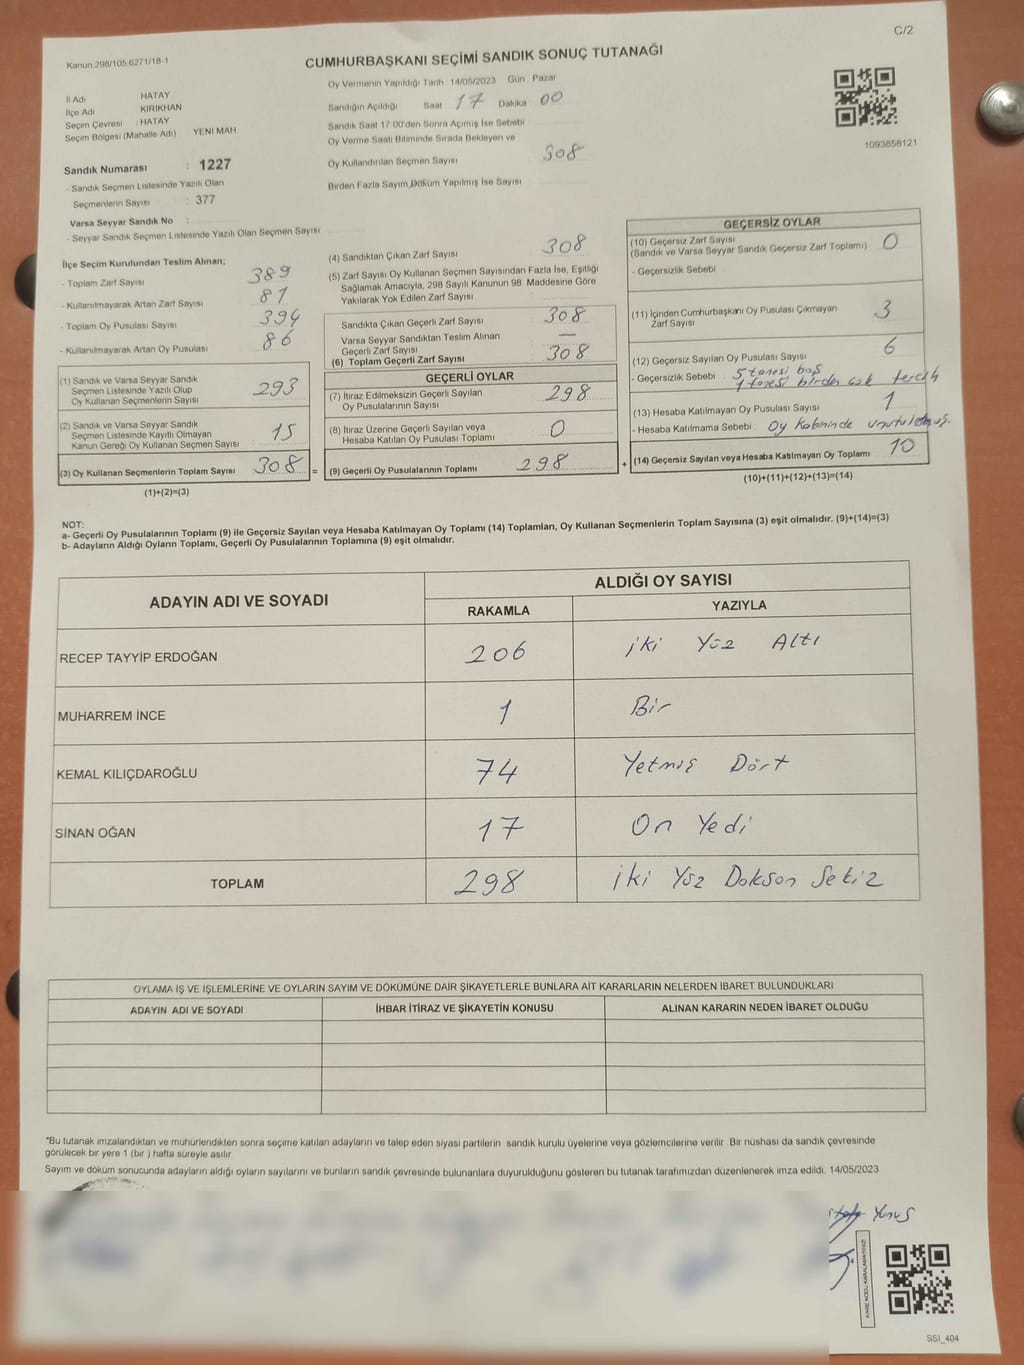 C/2
Kanun.298/105.6271/18-1
CUMHURBAŞKANI SEÇİMİ SANDIK SONUÇ TUTANAĞI
İl Adı HATAY
İlçe Adı KIRIKHAN
Seçim Çevresi : HATAY
Seçim Bölgesi (Mahalle Adı) YENİ MAH.
Sandık Numarası : 1227
- Sandık Seçmen Listesinde Yazılı Olan
Seçmenlerin Sayısı : 377
Varsa Seyyar Sandık No :
- Seyyar Sandık Seçmen Listesinde Yazılı Olan Seçmen Sayısı
Oy Vermenin Yapıldığı Tarih 14/05/2023 Gün Pazar
Sandığın Açıldığı Saat 17 Dakika 00
Sandık Saat 17.00'den Sonra Açımış İse Sebebi
Oy Verme Saati Bitiminde Sırada Bekleyen ve
Oy Kullandırılan Seçmen Sayısı 308
Birden Fazla Sayım,Döküm Yapılmış İse Sayısı
1093858121
İlçe Seçim Kurulundan Teslim Alınan;
- Toplam Zarf Sayısı 389
- Kullanılmayarak Artan Zarf Sayısı 81
- Toplam Oy Pusulası Sayısı 394
- Kullanılmayarak Artan Oy Pusulası 86
(1) Sandık ve Varsa Seyyar Sandık
Seçmen Listesinde Yazılı Olup
Oy Kullanan Seçmenlerin Sayısı 293
(2) Sandık ve Varsa Seyyar Sandık
Seçmen Listesinde Kayıtlı Olmayan
Kanun Gereği Oy Kullanan Seçmen Sayısı 15
(3) Oy Kullanan Seçmenlerin Toplam Sayısı 308 =
(1)+(2)=(3)
(4) Sandıktan Çıkan Zarf Sayısı 308
(5) Zarf Sayısı Oy Kullanan Seçmen Sayısından Fazla İse, Eşitliği
Sağlamak Amacıyla, 298 Sayılı Kanunun 98. Maddesine Göre
Yakılarak Yok Edilen Zarf Sayısı
Sandıkta Çıkan Geçerli Zarf Sayısı 308
Varsa Seyyar Sandıktan Teslim Alınan
Geçerli Zarf Sayısı —
(6) Toplam Geçerli Zarf Sayısı 308
GEÇERLİ OYLAR
(7) İtiraz Edilmeksizin Geçerli Sayılan
Oy Pusulalarının Sayısı 298
(8) İtiraz Üzerine Geçerli Sayılan veya
Hesaba Katılan Oy Pusulası Toplamı 0
(9) Geçerli Oy Pusulalarının Toplamı 298 +
GEÇERSİZ OYLAR
(10) Geçersiz Zarf Sayısı
(Sandık ve Varsa Seyyar Sandık Geçersiz Zarf Toplamı) 0
- Geçersizlik Sebebi
(11) İçinden Cumhurbaşkanı Oy Pusulası Çıkmayan
Zarf Sayısı 3
(12) Geçersiz Sayılan Oy Pusulası Sayısı 6
- Geçersizlik Sebebi : 5 tanesi boş
1 tanesi birden çok tercih
(13) Hesaba Katılmayan Oy Pusulası Sayısı 1
- Hesaba Katılmama Sebebi : Oy kabininde unutulmuş.
(14) Geçersiz Sayılan veya Hesaba Katılmayan Oy Toplamı 10
(10)+(11)+(12)+(13)=(14)
NOT:
a- Geçerli Oy Pusulalarının Toplamı (9) ile Geçersiz Sayılan veya Hesaba Katılmayan Oy Toplamı (14) Toplamları, Oy Kullanan Seçmenlerin Toplam Sayısına (3) eşit olmalıdır. (9)+(14)=(3)
b- Adayların Aldığı Oyların Toplamı, Geçerli Oy Pusulalarının Toplamına (9) eşit olmalıdır.
ADAYIN ADI VE SOYADI ALDIĞI OY SAYISI
RAKAMLA YAZIYLA
RECEP TAYYİP ERDOĞAN 206 iki Yüz Altı
MUHARREM İNCE 1 Bir
KEMAL KILIÇDAROĞLU 74 Yetmiş Dört
SİNAN OĞAN 17 On Yedi
TOPLAM 298 iki Yüz Doksan Sekiz
OYLAMA İŞ VE İŞLEMLERİNE VE OYLARIN SAYIM VE DÖKÜMÜNE DAİR ŞİKAYETLERLE BUNLARA AİT KARARLARIN NELERDEN İBARET BULUNDUKLARI
ADAYIN ADI VE SOYADI İHBAR İTİRAZ VE ŞİKAYETİN KONUSU ALINAN KARARIN NEDEN İBARET OLDUĞU
*Bu tutanak imzalandıktan ve mühürlendikten sonra seçime katılan adayların ve talep eden siyasi partilerin sandık kurulu üyelerine veya gözlemcilerine verilir. Bir nüshası da sandık çevresinde
görülecek bir yere 1 (bir ) hafta süreyle asılır.
Sayım ve döküm sonucunda adayların aldığı oyların sayılarını ve bunların sandık çevresinde bulunanlara duyurulduğunu gösteren bu tutanak tarafımızdan düzenlenerek imza edildi. 14/05/2023
Yunus
KARE KODU KARALAMAYINIZ!
SSI_404